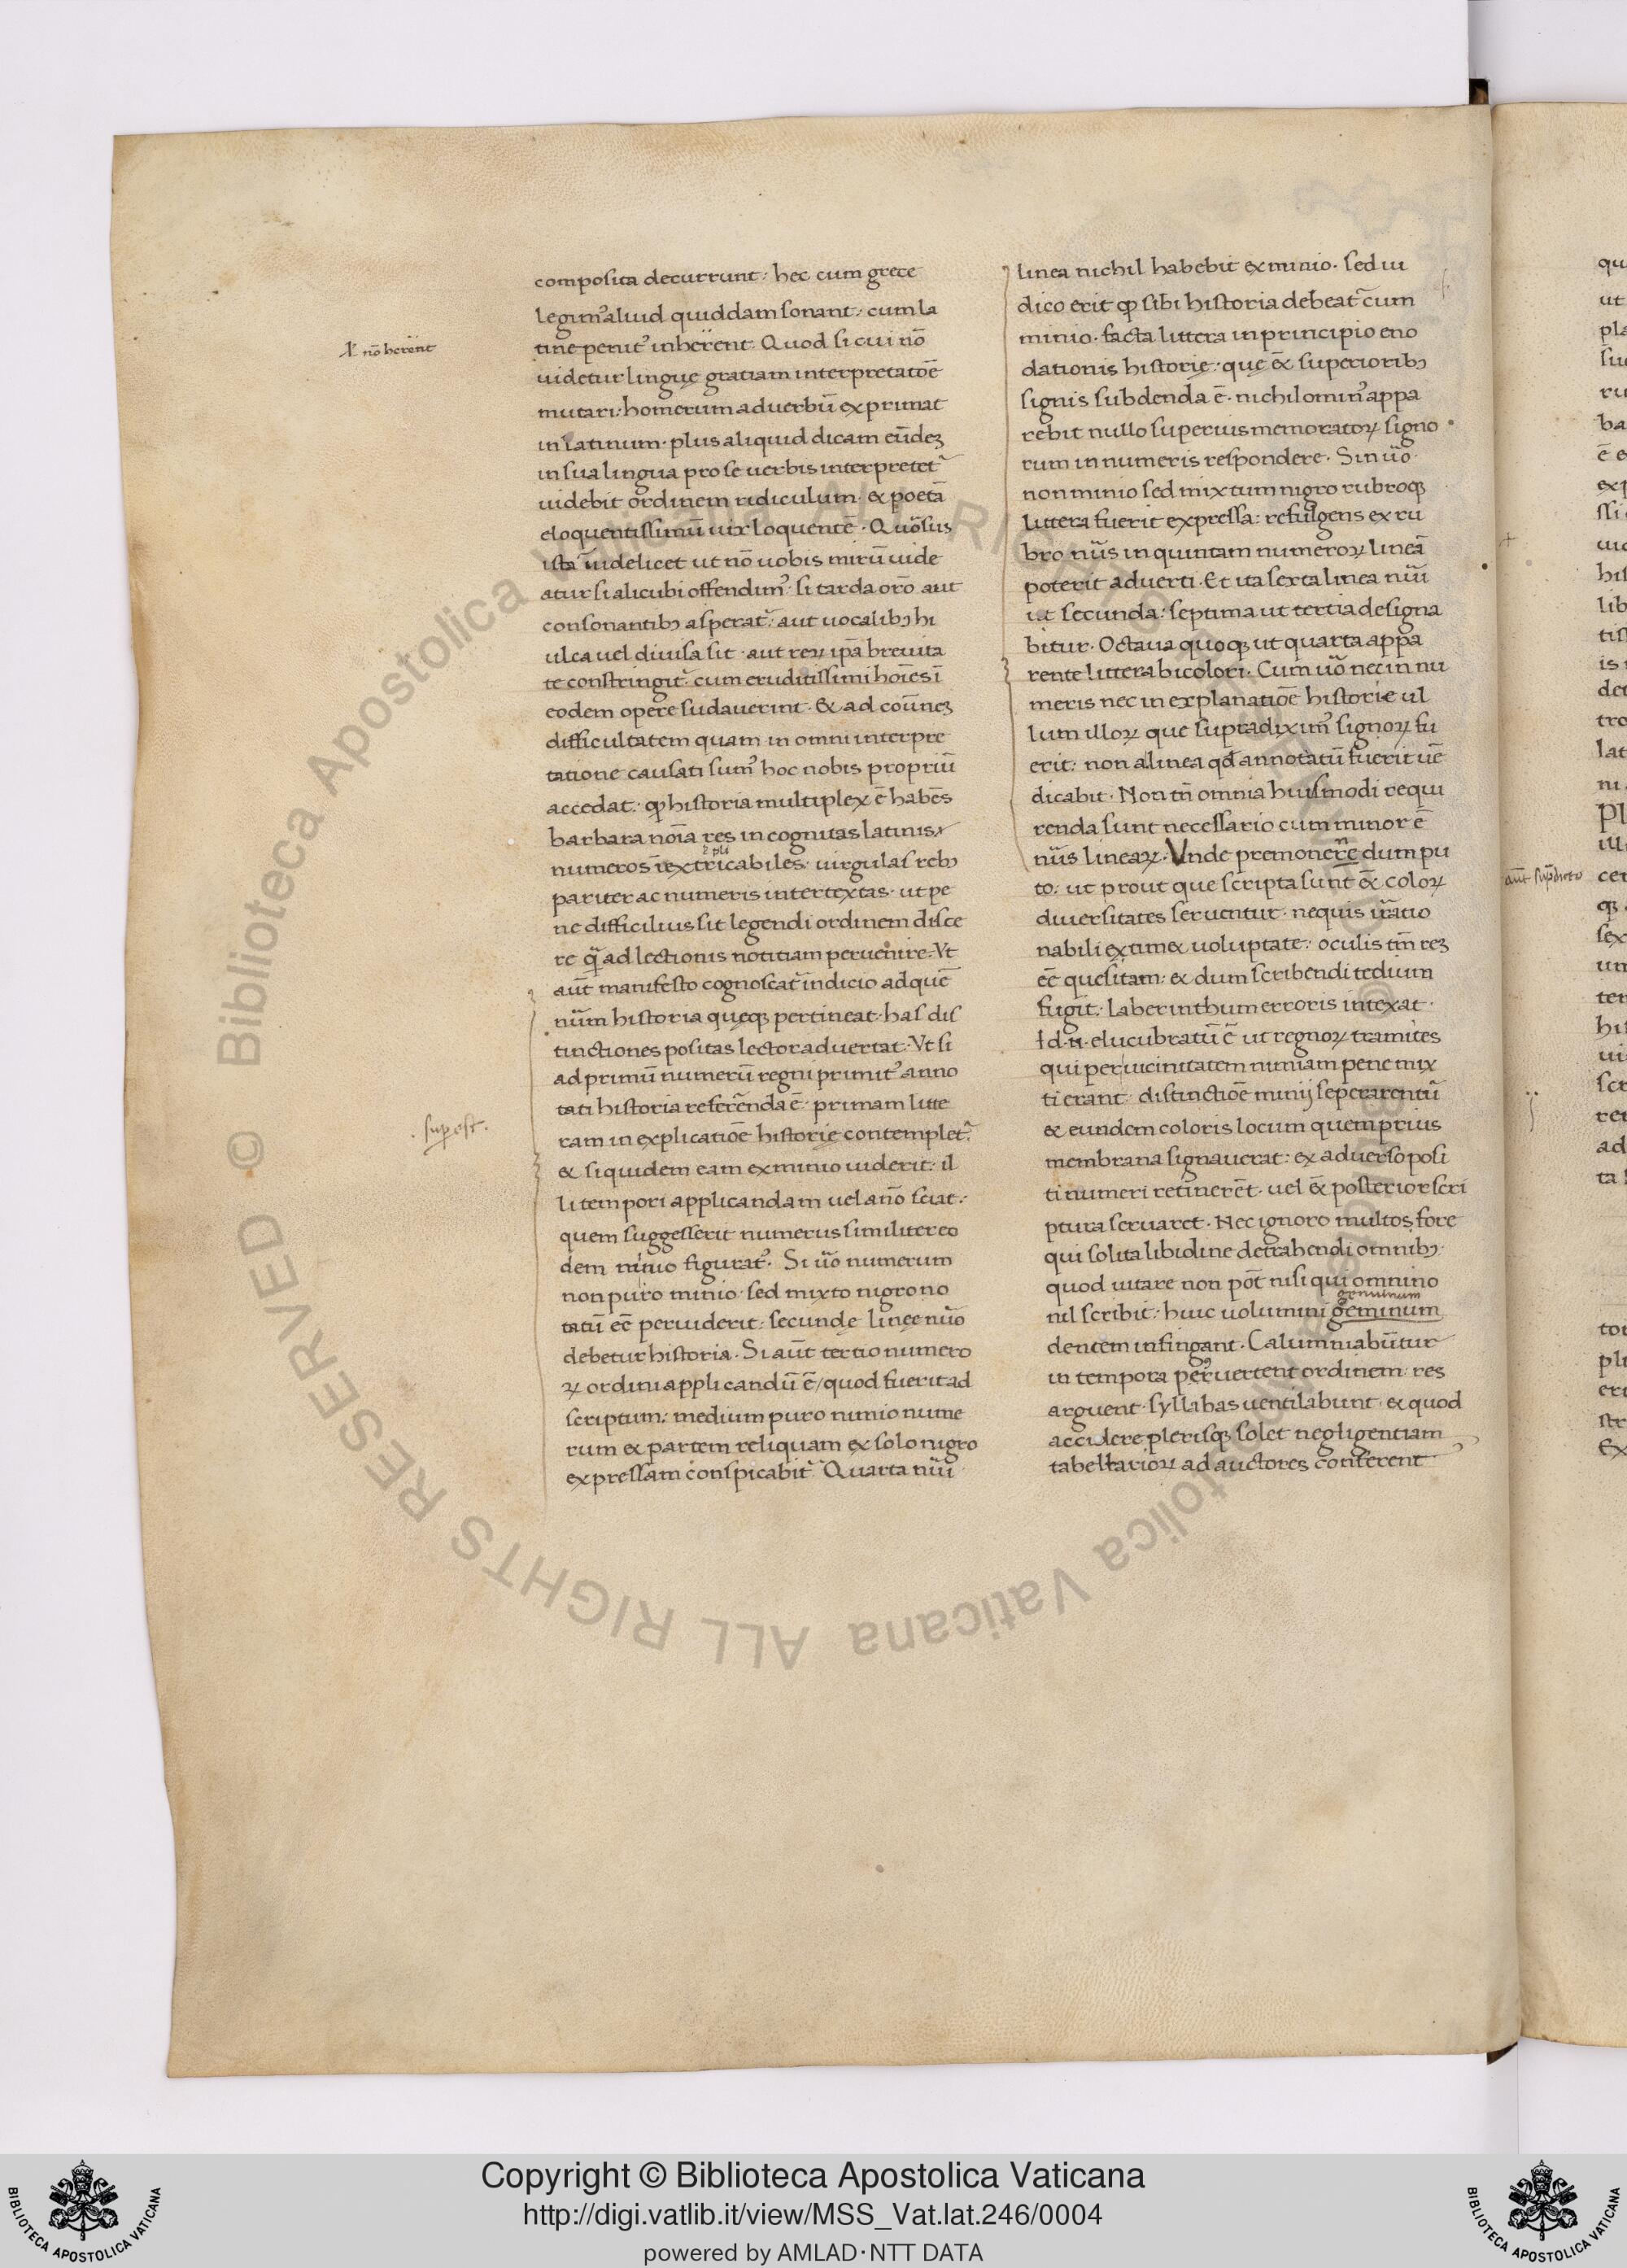 composita decurrunt: hec cum grece
legim᾽ aliud quiddam sonant: cum la
tine penit᾽ inherent. Quod si cui nō
uidetur linguę gratiam interpretatōē
mutari: homerum ad uerbū exprimat
in latinum. plus aliquid dicam eūdeꝫ
in sua lingua prose uerbis interpretet᷑
uidebit ordinem ridiculum. ex poetā
eloquentissimū uix loquentē. Quorsus
ista uidelicet ut nō uobis mirū uide
atur si alicubi offendim᷒. si tarda oro aut
consonantibꝫ asperat᷑: aut uocalibꝫ hi
ulca uel diuisa sit. aut reꝝ ipā breuita
te constringit᷑. cum eruditissimi hoīes ī
eodem opere sudauerint. & ad cōūneꝫ
difficultatem quam in omni interpre
tatione causati sum᷒ hoc nobis propriū
accedat: ꝙ historia multiplex ē habēs
barbara noīa res incognitas latinis.
numeros īextricabiles. uirgulas rebꝫ
pariter ac numeris intertextas. ut pe
ne difficilius sit legendi ordinem disce
re q̄ ad lectionis notitiam peruenire. Vt
aūt manifesto cognoscat᷑ indicio ad quē
nūm historia queqꝫ pertineat. has dis
tinctiones positas lector aduertat. Vt si
ad primū numerū regni primit᷒ anno
tati historia referenda ē. primam litte
ram in explicatiōē historie contemplet᷑
& siquidem eam ex minio uiderit. il
li tempori applicandam uel anō sciat.
quem suggesserit numerus similiter eo
dem minio figurat᷒. Si ūo numerum
non puro minio. sed mixto nigro no
tatū eē peruiderit. secundę lineę nūo
debetur historia. Si aūt tertio numero
ꝝ ordini applicandū ē/ quod fuerit ad
scriptum: medium puro minio nume
rum ex partem reliquam ex solo nigro
expressam conspicabit᷑. Quarta nūi
nō herent
.supest.
linea nichil habebit ex minio. sed iu
dico erit ꝙ sibi historia debeat᷑ cum
minio. facta littera in principio eno
dationis historię. quę ex superioribꝫ
signis subdenda ē. nichilomin᷒ appa
rebit nullo superius memoratoꝝ signo
rum in numeris respondere. Sin ūo
non minio sed mixtum nigro rubroqꝫ
littera fuerit expressa: refulgens ex ru
bro nūs in quintam numeroꝝ lineā
poterit aduerti. Et ita sexta linea nūi
ut secunda: septima ut tertia designa
bitur. Octaua quoqꝫ ut quarta appa
rente littera bicolori. Cum ūo nec in nu
meris nec in explanatiōē historie ul
lum illoꝝ que supradixim᷒ signoꝝ fu
erit: non a linea qd annotatū fuerit uē
dicabit. Non tn̄ omnia huiusmodi requi
renda sunt necessario cum minor ē
nūs lineaꝝ. Vnde premonere dum pu
to: ut prout que scripta sunt ex coloꝝ
diuersitates seruentur. nequis irratio
nabili extimex uoluptate: oculis tm̄ reꝫ
eē quesitam. ex dum scribendi tedium
fugit: laberinthum erroris intexat.
Id. n. elucubratū ē ut regnoꝝ tramites
qui per uicinitatem nimiam pene mix
ti erant distinctiōē minij seperarentur
ex eundem coloris locum quem prius
membrana signauerat: ex aduerso posi
ti numeri retinerēt. uel ex posterior scri
ptura seruaret. Nec ignoro multos fore
qui solita libidine detrahendi omnibꝫ.
quod uitare non pōt nisi qui omnino
nil scribit: huic uolumini geminum
genuinum
dentem infingant. Calumniabūtur
in tempora peruertent ordinem. res
arguent. syllabas uentilabunt. ex quod
accidere plerisqꝫ solet negligentiam
tabellarioꝝ ad auctores conferent
aūt sup̄dicto
© Biblioteca Apostolica Vaticana ALL RIGHTS RESERVED
© Biblioteca Apostolica Vaticana ALL RIGHTS RESERVED
Copyright © Biblioteca Apostolica Vaticana
http://digi.vatlib.it/view/MSS_Vat.lat.246/0004
powered by AMLAD·NTT DATA
BIBLIOTECA APOSTOLICA VATICANA
BIBLIOTECA APOSTOLICA VATICANA